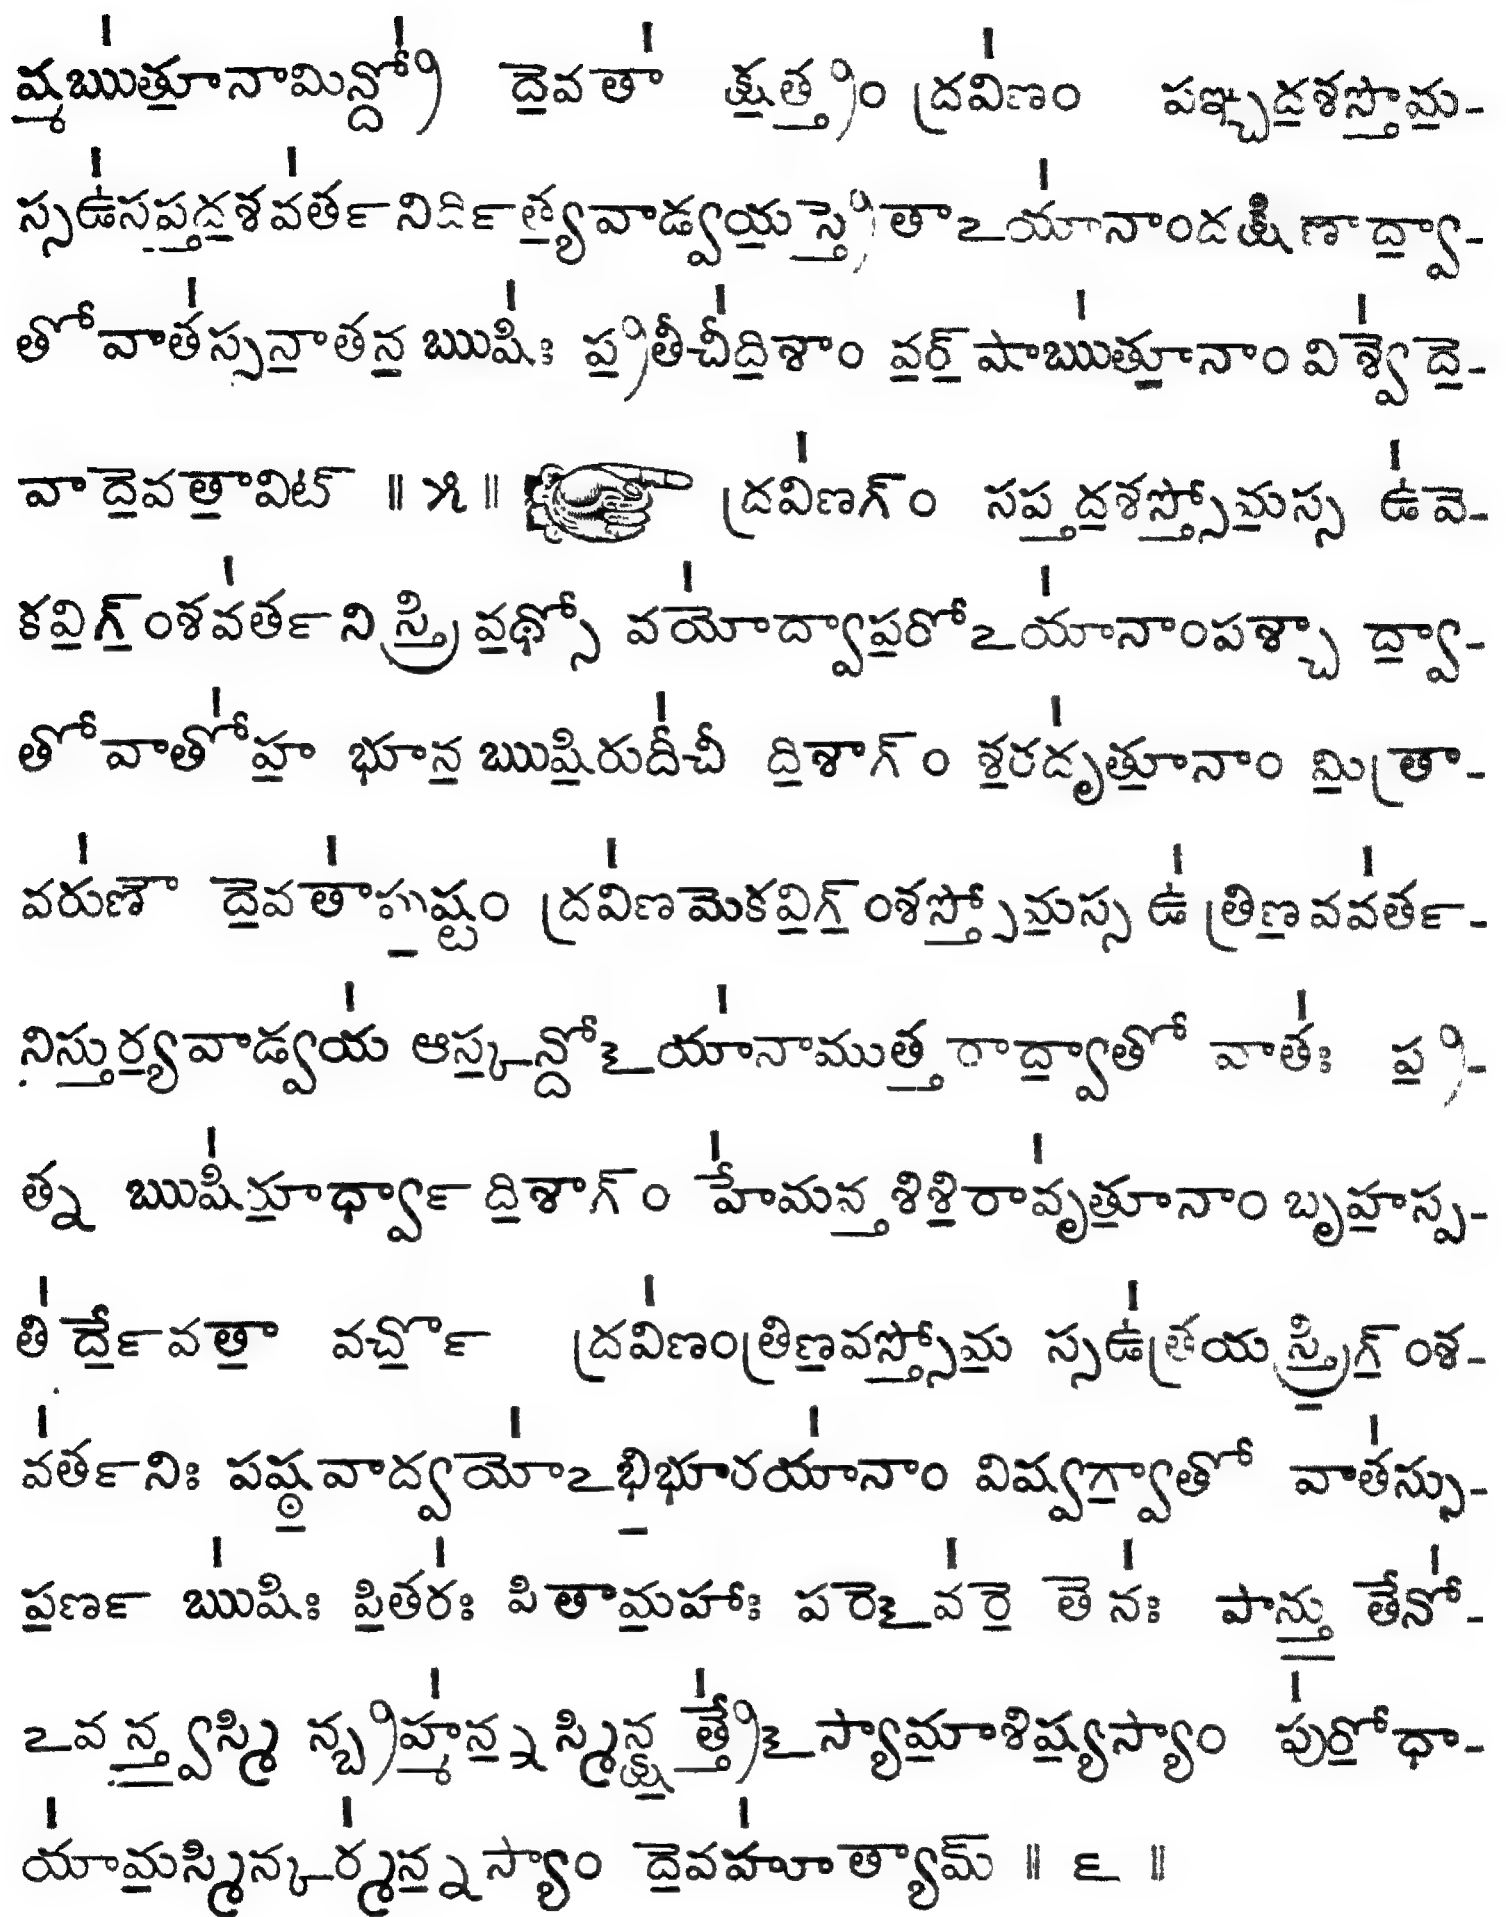 ష్మఋత్తూనామిన్ద్రో దేవతా క్షత్త్రం ద్రవిణం పఞ్చదశస్తోమ-
స్సఉసప్తదశవర్తనిర్దిత్యవాడ్వయస్త్రేతాఽయానాందక్షిణాద్వా-
తోవాతస్సనాతనఋషిః ప్రతీచీదిశాం వర్‌షాఋతూనాం విశ్వేదే-
వాదేవతావిట్ ॥ ౫ ॥ ద్రవిణగ్‌ం సప్తదశస్తోమస్స ఉవె-
కవిగ్‌ంశవర్తనిస్త్రివథ్సో వయోద్వాపరోఽయానాంపశ్చా ద్వా-
తోవాతోహ భూన ఋషిరుదీచీ దిశాగ్‌ం శరదృతూనాం మిత్రా-
వరుణౌ దేవతాపుష్టం ద్రవిణమెకవిగ్‌ంశస్తోమస్స ఉ త్రిణవవర్త-
నిస్తుర్యవాడ్వయ ఆస్కన్దోఽయానాముత్తరాద్వాతో వాతః ప్ర-
త్న ఋషిరూర్ధ్వా దిశాగ్‌ం హేమన్తశిశిరావృతూనాం బృహస్ప-
తిర్దేవతా వర్చో ద్రవిణంత్రిణవస్తోమ స్సఉత్రయస్త్రిగ్‌ంశ-
వర్తనిః పష్ఠవాద్వయోఽభిభూరయానాం విష్వగ్వాతో వాతస్సు-
పర్ణ ఋషిః పితరః పితామహాః పరెఽవరె తె నః పాన్తు తేనో-
ఽవన్త్వస్మి న్బ్రహ్మన్న స్మిన్క్ష త్త్రేఽస్యామాశిష్యస్యాం పురోధా-
యామస్మిన్కర్మన్నస్యాం దేవహూత్యామ్ ॥ ౬ ॥